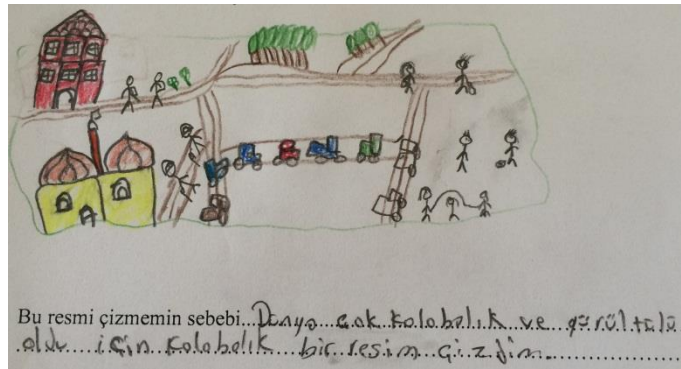 Bu resmi çizmemin sebebi...Dünya çok kolobolık ve gürültülü
oldu için kolobolık bir resim çizdim